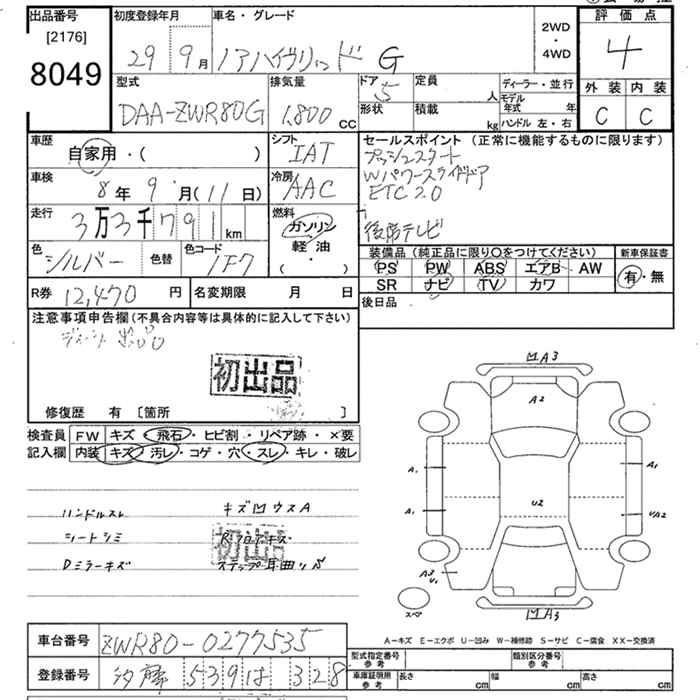 出品番号
[2176]
8049
初度登録年月
29 9月
車名・グレード
ノアハイブリッド G
2WD
・
4WD
評価点
4
外装 内装
C C
型式
DAA-ZWR80G
排気量
1,800 cc
ドア 5
形状
定員 人
積載 kg
ディーラー・並行
モデル年式 年
ハンドル 左・右
車歴
自家用・( )
シフト
IAT
セールスポイント (正常に機能するものに限ります)
プッシュスタート
Wパワースライドドア
ETC2.0
後席テレビ
車検
8年9月(11日)
冷房
AAC
走行
3万3千791km
燃料
ガソリン
軽油
( ・ )
色
シルバー
色替
色コード
1F7
装備品 (純正品に限り○をつけてください)
PS PW ABS エアB AW
SR ナビ TV カワ
新車保証書
有・無
R券 12,470円
名変期限 月 日
後日品
注意事項申告欄 (不具合内容等は具体的に記入して下さい)
初出品
修復歴 有 [箇所 ]
検査員記入欄
FW キズ・飛石・ヒビ割・リペア跡・×要
内装 キズ・汚レ・コゲ・穴・スレ・キレ・破レ
ハンドルスレ
キズ凹ウスA
シートシミ
初出品
Dミラーキズ
凹A3
A2
A1
A1
U2
A1
UA2
A3
U1
スペア
凹A3
A-キズ E-エクボ U-凹み W-補修跡 S-サビ C-腐食 XX-交換済
車台番号 ZWR80-0277535
登録番号 539 は 328
型式指定番号 参考
類別区分番号 参考
車庫証明用 参考
長さ cm
幅 cm
高さ cm